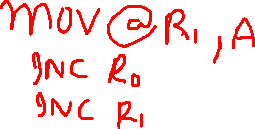 MOV @R1, A
INC R0
INC R1